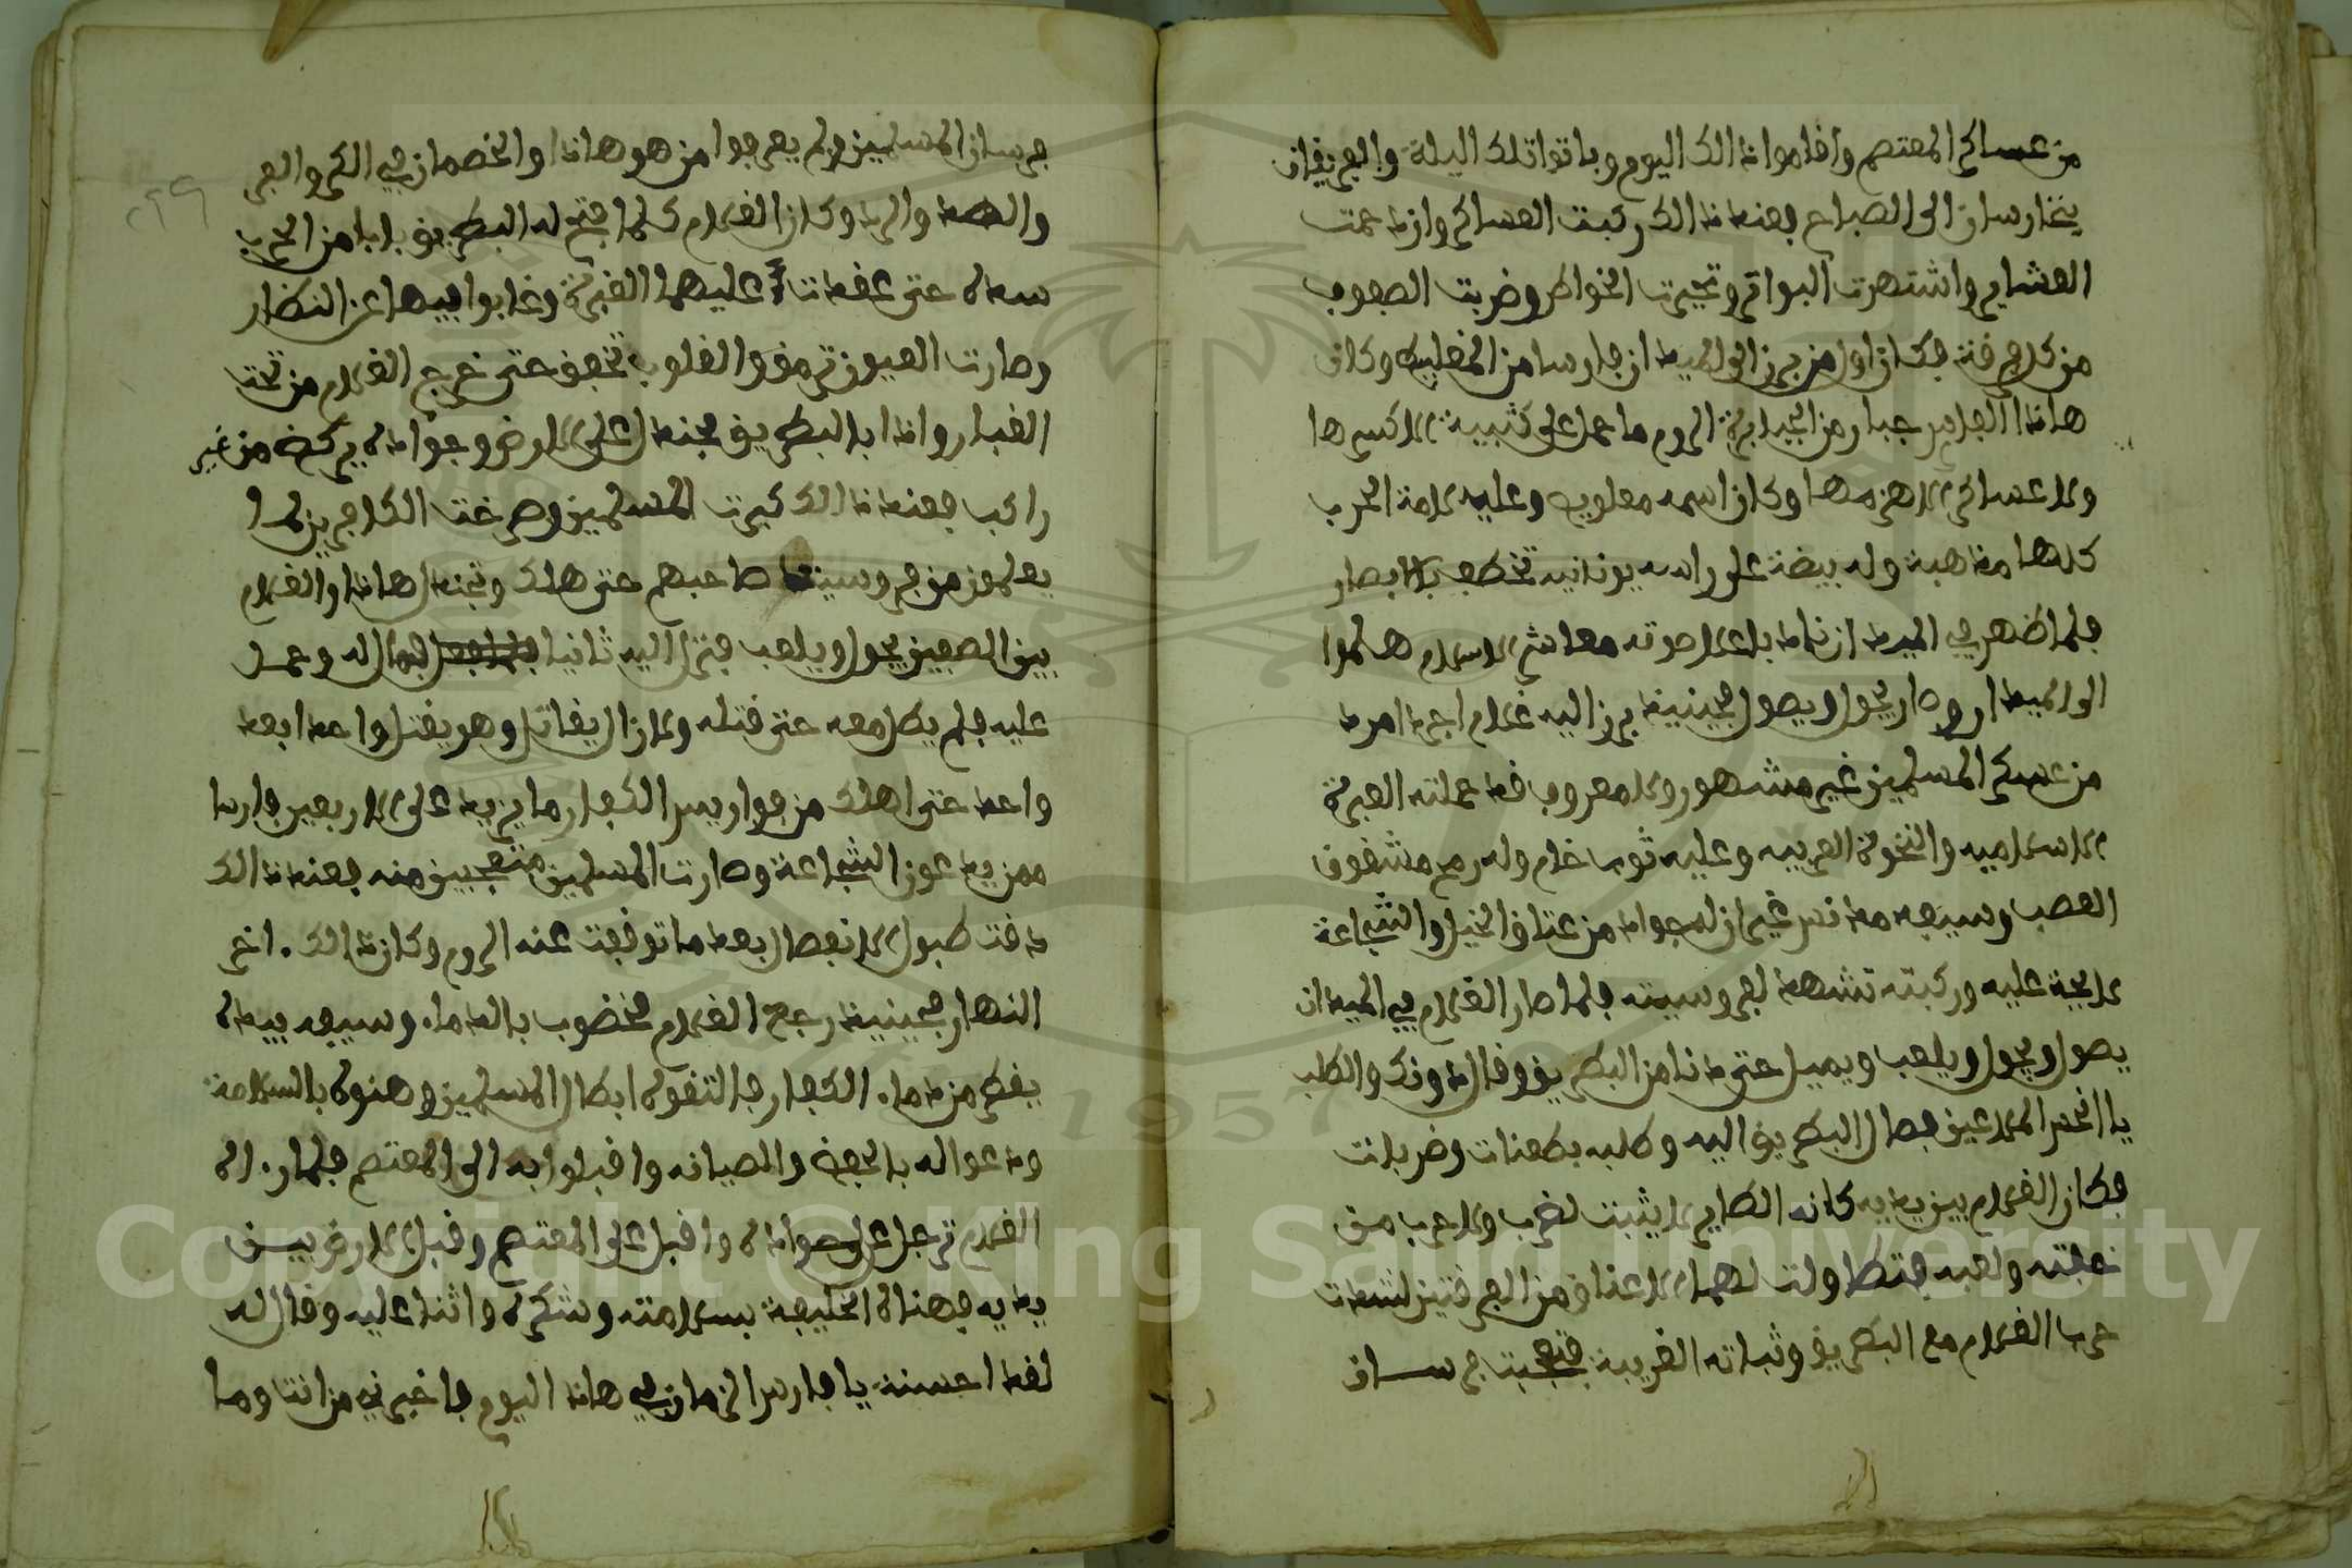 من عساكر المعتصم واقاموا ذالك اليوم وباتوا تلك اليلة والفريقان
يتحارسان الى الصباح فعند ذالك ركبت العساكر وازدحمت
العشاير واشتهرت البواتر وتحيرت الخواطر وضربت الصفوف
من كل فرقة فكان اول من برز الى الميدان فارسا من الخفليه وكان
هاذا الفارس جبار من الجبابرة الروم ما حمل على كتيبة الا كسرها
ولا عساكر الا هزمها وكان اسمه معلوب وعليه لامة الحرب
كلها مذهبة وله بيضة على راسه يونانيه تخطف بالابصار
فلما ظهر في الميدان نادا باعلا صوته معاشر الاسلام هلموا
الى الميدان وصار يجول ويصول فحينيذ برز اليه غلام اجرد امرد
من عسكر المسلمين غير مشهور ولا معروف قد حملته الغيرة
الاسلاميه والنخوة العربيه وعليه ثوب خام وله رمح مشقوق
القصب وسيفه مدنس غير ان له جواد من عتاق الخيل والشجاعة
لايحة عليه وركبته تشهد لفروسيته فلما صار الغلام في الميدان
يصول ويجول ويلعب ويميل حتى دنا من البطريق وقال دونك والكلب
يا انحس الملاعين فصال البطريق اليه وطلبه بطعنات وضربات
فكان الغلام بين يديه كانه الطاير لا يثبت لضرب ولا حرب من
خفته ولعبه فتطاولت لهما الاعناق من الفرقتين لشدت
حرب الغلام مع البطريق وثباته الغريبة فتعجبت فرسان
فرسان المسلمين ولم يعرفوا من هو هاذا والخصمان في الكر والفر
والصد والرد وكان الغلام كلما فتح له البطريق بابا من الحرب
سده حتى عقدت عليهما الغبرة وغابوا فيها عن النظار
وصارت العيون ترمق والقلوب تخفق حتى خرج الغلام من تحت
الغبار واذا بالبطريق مجندل على الارض وجواده يركض من غير
راكب فعند ذالك كبرت المسلمين وصرخت الكافرين لما
يعلمون من فروسيت صاحبهم حتى هلك وتجندل هاذا والغلام
بين الصفين يجول ويلعب فنزل اليه ثانيا فمال له وحمل
عليه فلم يطل معه حتى قتله ولازال يقاتل وهو يقتل واحد ابعد
واحد حتى اهلك من فواريس الكفار ما يزيد على الاربعين فارسا
ممن يدعون الشجاعة وصارت المسلمين متعجبين منه فعند ذالك
دقت طبول الانفصال بعد ما توقفت عنه الروم وكان ذالك اخر
النهار فحينيذ رجع الغلام مخضوب بالدماء وسيفه بيده
يقطر من دماء الكفار فالتقوه ابطال المسلمين وهنوه بالسلامة
ودعوا له بالحفظ والصيانه واقبلوا به الى المعتصم فلما راه
الغلام ترجل على جواده واقبل على المعتصم وقبل الارض بين
يديه فهناه الخليفة بسلامته وشكره واثنا عليه وقال له
لقد احسنت يا فارس الزمان في هاذا اليوم فاخبرني من انت وما